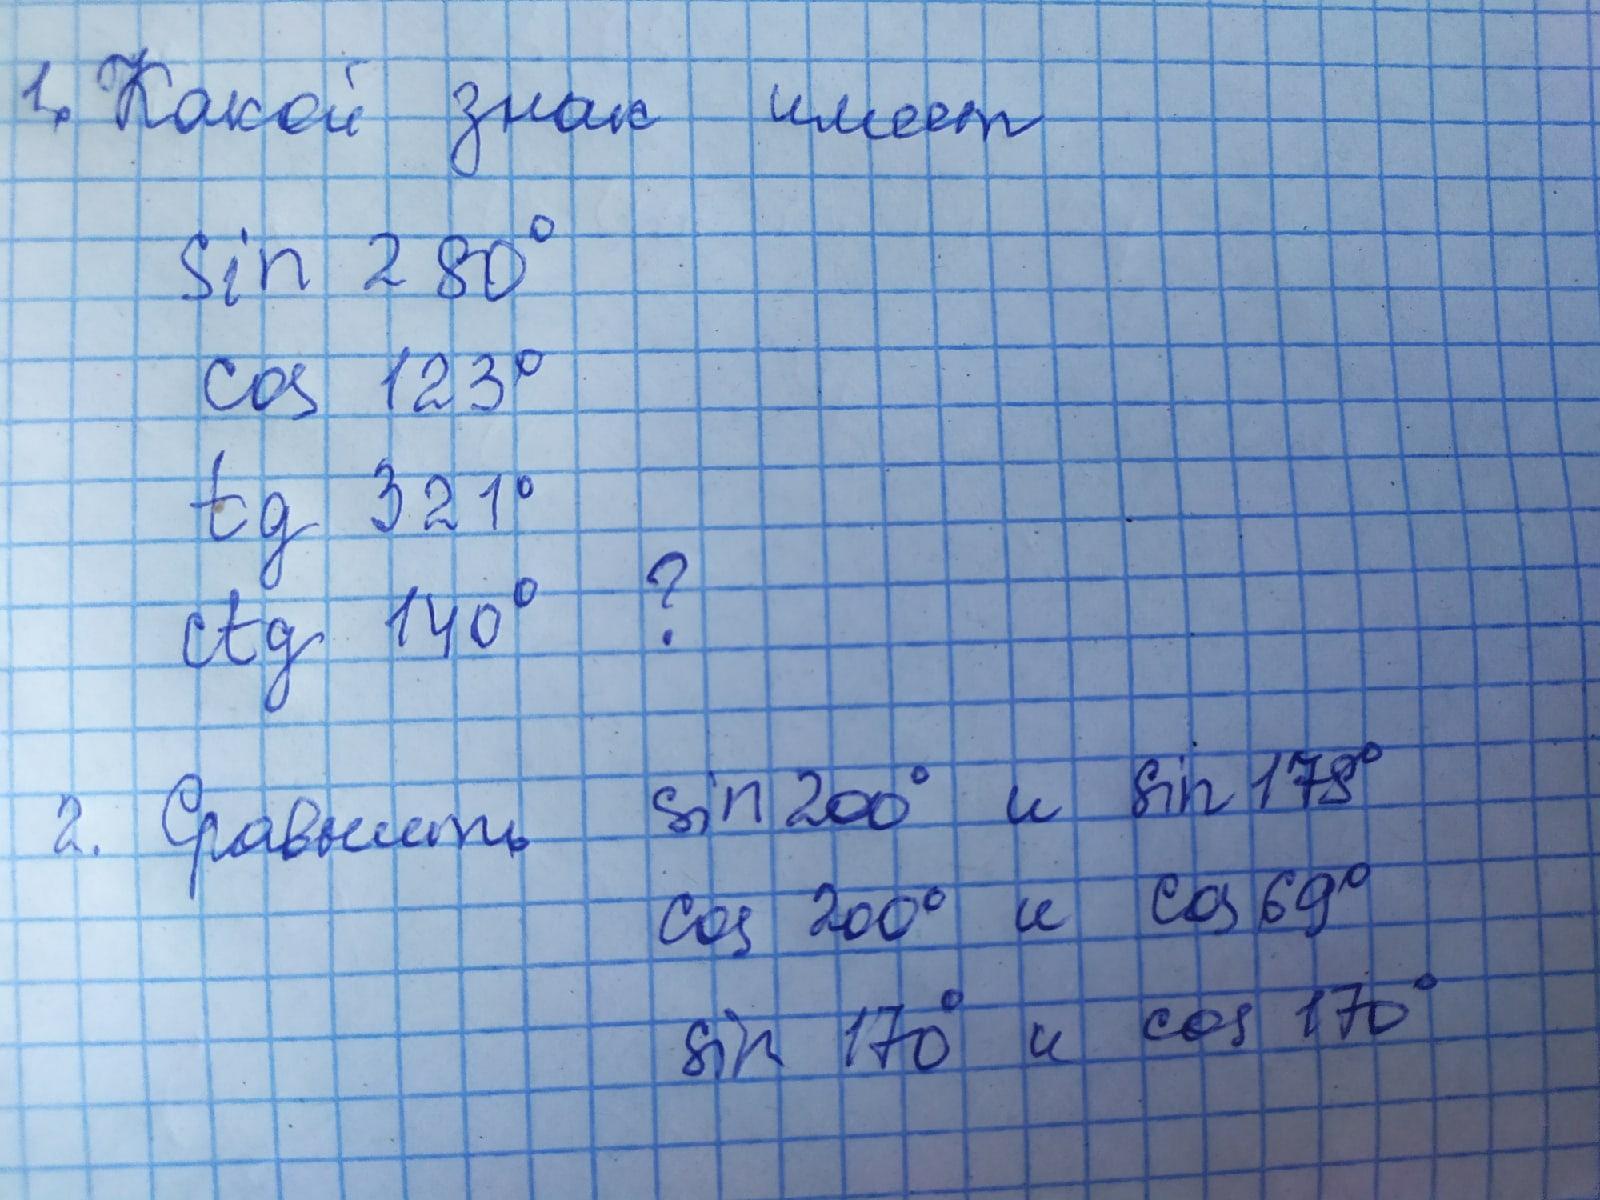 1. Какой знак имеет
sin 280°
cos 123°
tg 321°
ctg 140° ?
2. Сравнить sin 200° и sin 178°
cos 200° и cos 69°
sin 170° и cos 170°